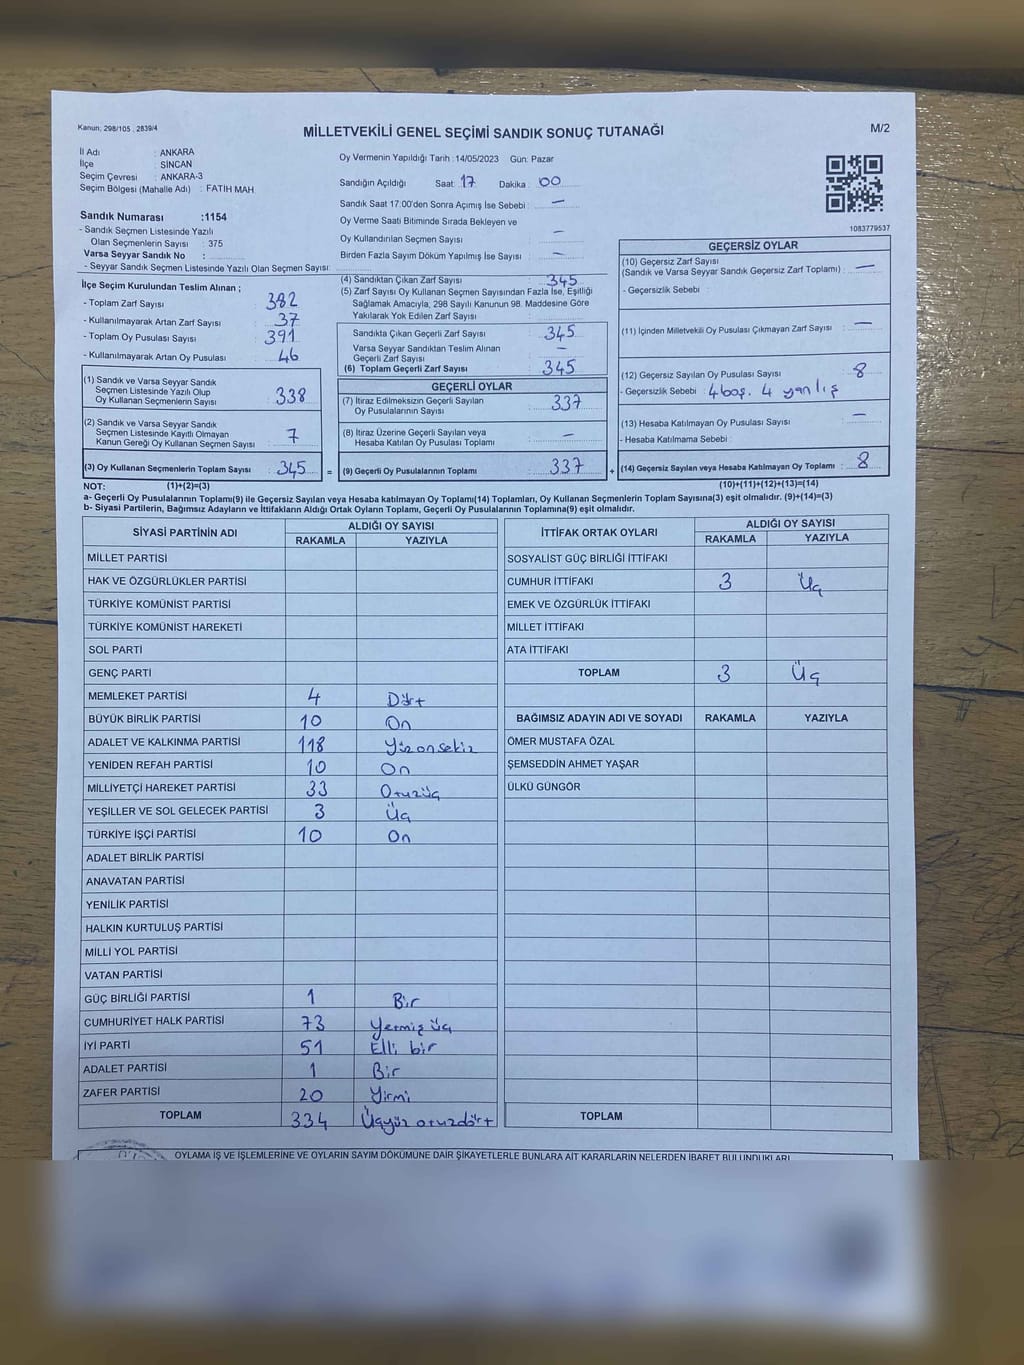 Kanun; 298/105 , 2839/4
MİLLETVEKİLİ GENEL SEÇİMİ SANDIK SONUÇ TUTANAĞI
M/2
İl Adı : ANKARA
İlçe : SİNCAN
Seçim Çevresi : ANKARA-3
Seçim Bölgesi (Mahalle Adı) : FATİH MAH
Sandık Numarası :1154
- Sandık Seçmen Listesinde Yazılı
Olan Seçmenlerin Sayısı : 375
Varsa Seyyar Sandık No :
- Seyyar Sandık Seçmen Listesinde Yazılı Olan Seçmen Sayısı:
İlçe Seçim Kurulundan Teslim Alınan ;
- Toplam Zarf Sayısı : 382
- Kullanılmayarak Artan Zarf Sayısı : 37
- Toplam Oy Pusulası : 391
- Kullanılmayarak Artan Oy Pusulası : 46
(1) Sandık ve Varsa Seyyar Sandık
Seçmen Listesinde Yazılı Olup
Oy Kullanan Seçmenlerin Sayısı : 338
(2) Sandık ve Varsa Seyyar Sandık
Seçmen Listesinde Kayıtlı Olmayan
Kanun Gereği Oy Kullanan Seçmen Sayısı : 7
(3) Oy Kullanan Seçmenlerin Toplam Sayısı : 345 =
Oy Vermenin Yapıldığı Tarih : 14/05/2023 Gün: Pazar
Sandığın Açıldığı Saat: 17 Dakika : 00
Sandık Saat 17:00'den Sonra Açımış İse Sebebi : —
Oy Verme Saati Bitiminde Sırada Bekleyen ve
Oy Kullandırılan Seçmen Sayısı : —
Birden Fazla Sayım Döküm Yapılmış İse Sayısı : —
(4) Sandıktan Çıkan Zarf Sayısı : 345
(5) Zarf Sayısı Oy Kullanan Seçmen Sayısından Fazla İse, Eşitliği
Sağlamak Amacıyla, 298 Sayılı Kanunun 98. Maddesine Göre
Yakılarak Yok Edilen Zarf Sayısı :
Sandıkta Çıkan Geçerli Zarf Sayısı : 345
Varsa Seyyar Sandıktan Teslim Alınan
Geçerli Zarf Sayısı : —
(6) Toplam Geçerli Zarf Sayısı : 345
GEÇERLİ OYLAR
(7) İtiraz Edilmeksizin Geçerli Sayılan
Oy Pusulalarının Sayısı : 337
(8) İtiraz Üzerine Geçerli Sayılan veya
Hesaba Katılan Oy Pusulası Toplamı : —
(9) Geçerli Oy Pusulalarının Toplamı : 337 +
1083779537
GEÇERSİZ OYLAR
(10) Geçersiz Zarf Sayısı
(Sandık ve Varsa Seyyar Sandık Geçersiz Zarf Toplamı) : —
- Geçersizlik Sebebi :
(11) İçinden Milletvekili Oy Pusulası Çıkmayan Zarf Sayısı : —
(12) Geçersiz Sayılan Oy Pusulası Sayısı : 8
- Geçersizlik Sebebi : 4 boş. 4 yanlış
(13) Hesaba Katılmayan Oy Pusulası Sayısı : —
- Hesaba Katılmama Sebebi :
(14) Geçersiz Sayılan veya Hesaba Katılmayan Oy Toplamı : 8
NOT: (1)+(2)=(3) (10)+(11)+(12)+(13)=(14)
a- Geçerli Oy Pusulalarının Toplamı(9) ile Geçersiz Sayılan veya Hesaba katılmayan Oy Toplamı(14) Toplamları, Oy Kullanan Seçmenlerin Toplam Sayısına(3) eşit olmalıdır. (9)+(14)=(3)
b- Siyasi Partilerin, Bağımsız Adayların ve İttifakların Aldığı Ortak Oyların Toplamı, Geçerli Oy Pusulalarının Toplamına(9) eşit olmalıdır.
SİYASİ PARTİNİN ADI ALDIĞI OY SAYISI
RAKAMLA YAZIYLA
MİLLET PARTİSİ
HAK VE ÖZGÜRLÜKLER PARTİSİ
TÜRKİYE KOMÜNİST PARTİSİ
TÜRKİYE KOMÜNİST HAREKETİ
SOL PARTİ
GENÇ PARTİ
MEMLEKET PARTİSİ 4 Dört
BÜYÜK BİRLİK PARTİSİ 10 On
ADALET VE KALKINMA PARTİSİ 118 Yüzonsekiz
YENİDEN REFAH PARTİSİ 10 On
MİLLİYETÇİ HAREKET PARTİSİ 33 Otuzüç
YEŞİLLER VE SOL GELECEK PARTİSİ 3 Üç
TÜRKİYE İŞÇİ PARTİSİ 10 On
ADALET BİRLİK PARTİSİ
ANAVATAN PARTİSİ
YENİLİK PARTİSİ
HALKIN KURTULUŞ PARTİSİ
MİLLİ YOL PARTİSİ
VATAN PARTİSİ
GÜÇ BİRLİĞİ PARTİSİ 1 Bir
CUMHURİYET HALK PARTİSİ 73 Yermiş üç
İYİ PARTİ 51 Elli bir
ADALET PARTİSİ 1 Bir
ZAFER PARTİSİ 20 Yirmi
TOPLAM 334 Üçyüz otuzdört
İTTİFAK ORTAK OYLARI ALDIĞI OY SAYISI
RAKAMLA YAZIYLA
SOSYALİST GÜÇ BİRLİĞİ İTTİFAKI
CUMHUR İTTİFAKI 3 Üç
EMEK VE ÖZGÜRLÜK İTTİFAKI
MİLLET İTTİFAKI
ATA İTTİFAKI
TOPLAM 3 Üç
BAĞIMSIZ ADAYIN ADI VE SOYADI RAKAMLA YAZIYLA
ÖMER MUSTAFA ÖZAL
ŞEMSEDDİN AHMET YAŞAR
ÜLKÜ GÜNGÖR
TOPLAM
OYLAMA İŞ VE İŞLEMLERİNE VE OYLARIN SAYIM DÖKÜMÜNE DAİR ŞİKAYETLERLE BUNLARA AİT KARARLARIN NELERDEN İBARET BULUNDUKLARI